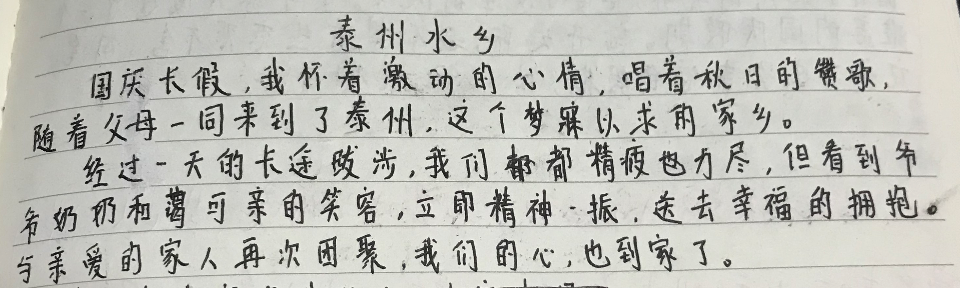 泰州水乡
国庆长假，我怀着激动的心情，唱着秋日的赞歌，
随着父母一同来到了泰州，这个梦寐以求的家乡。
经过一天的长途跋涉，我们都精疲力尽，但看到爷
爷奶奶和蔼可亲的笑容，立即精神一振，送去幸福的拥抱。
与亲爱的家人再次团聚，我们的心，也到家了。